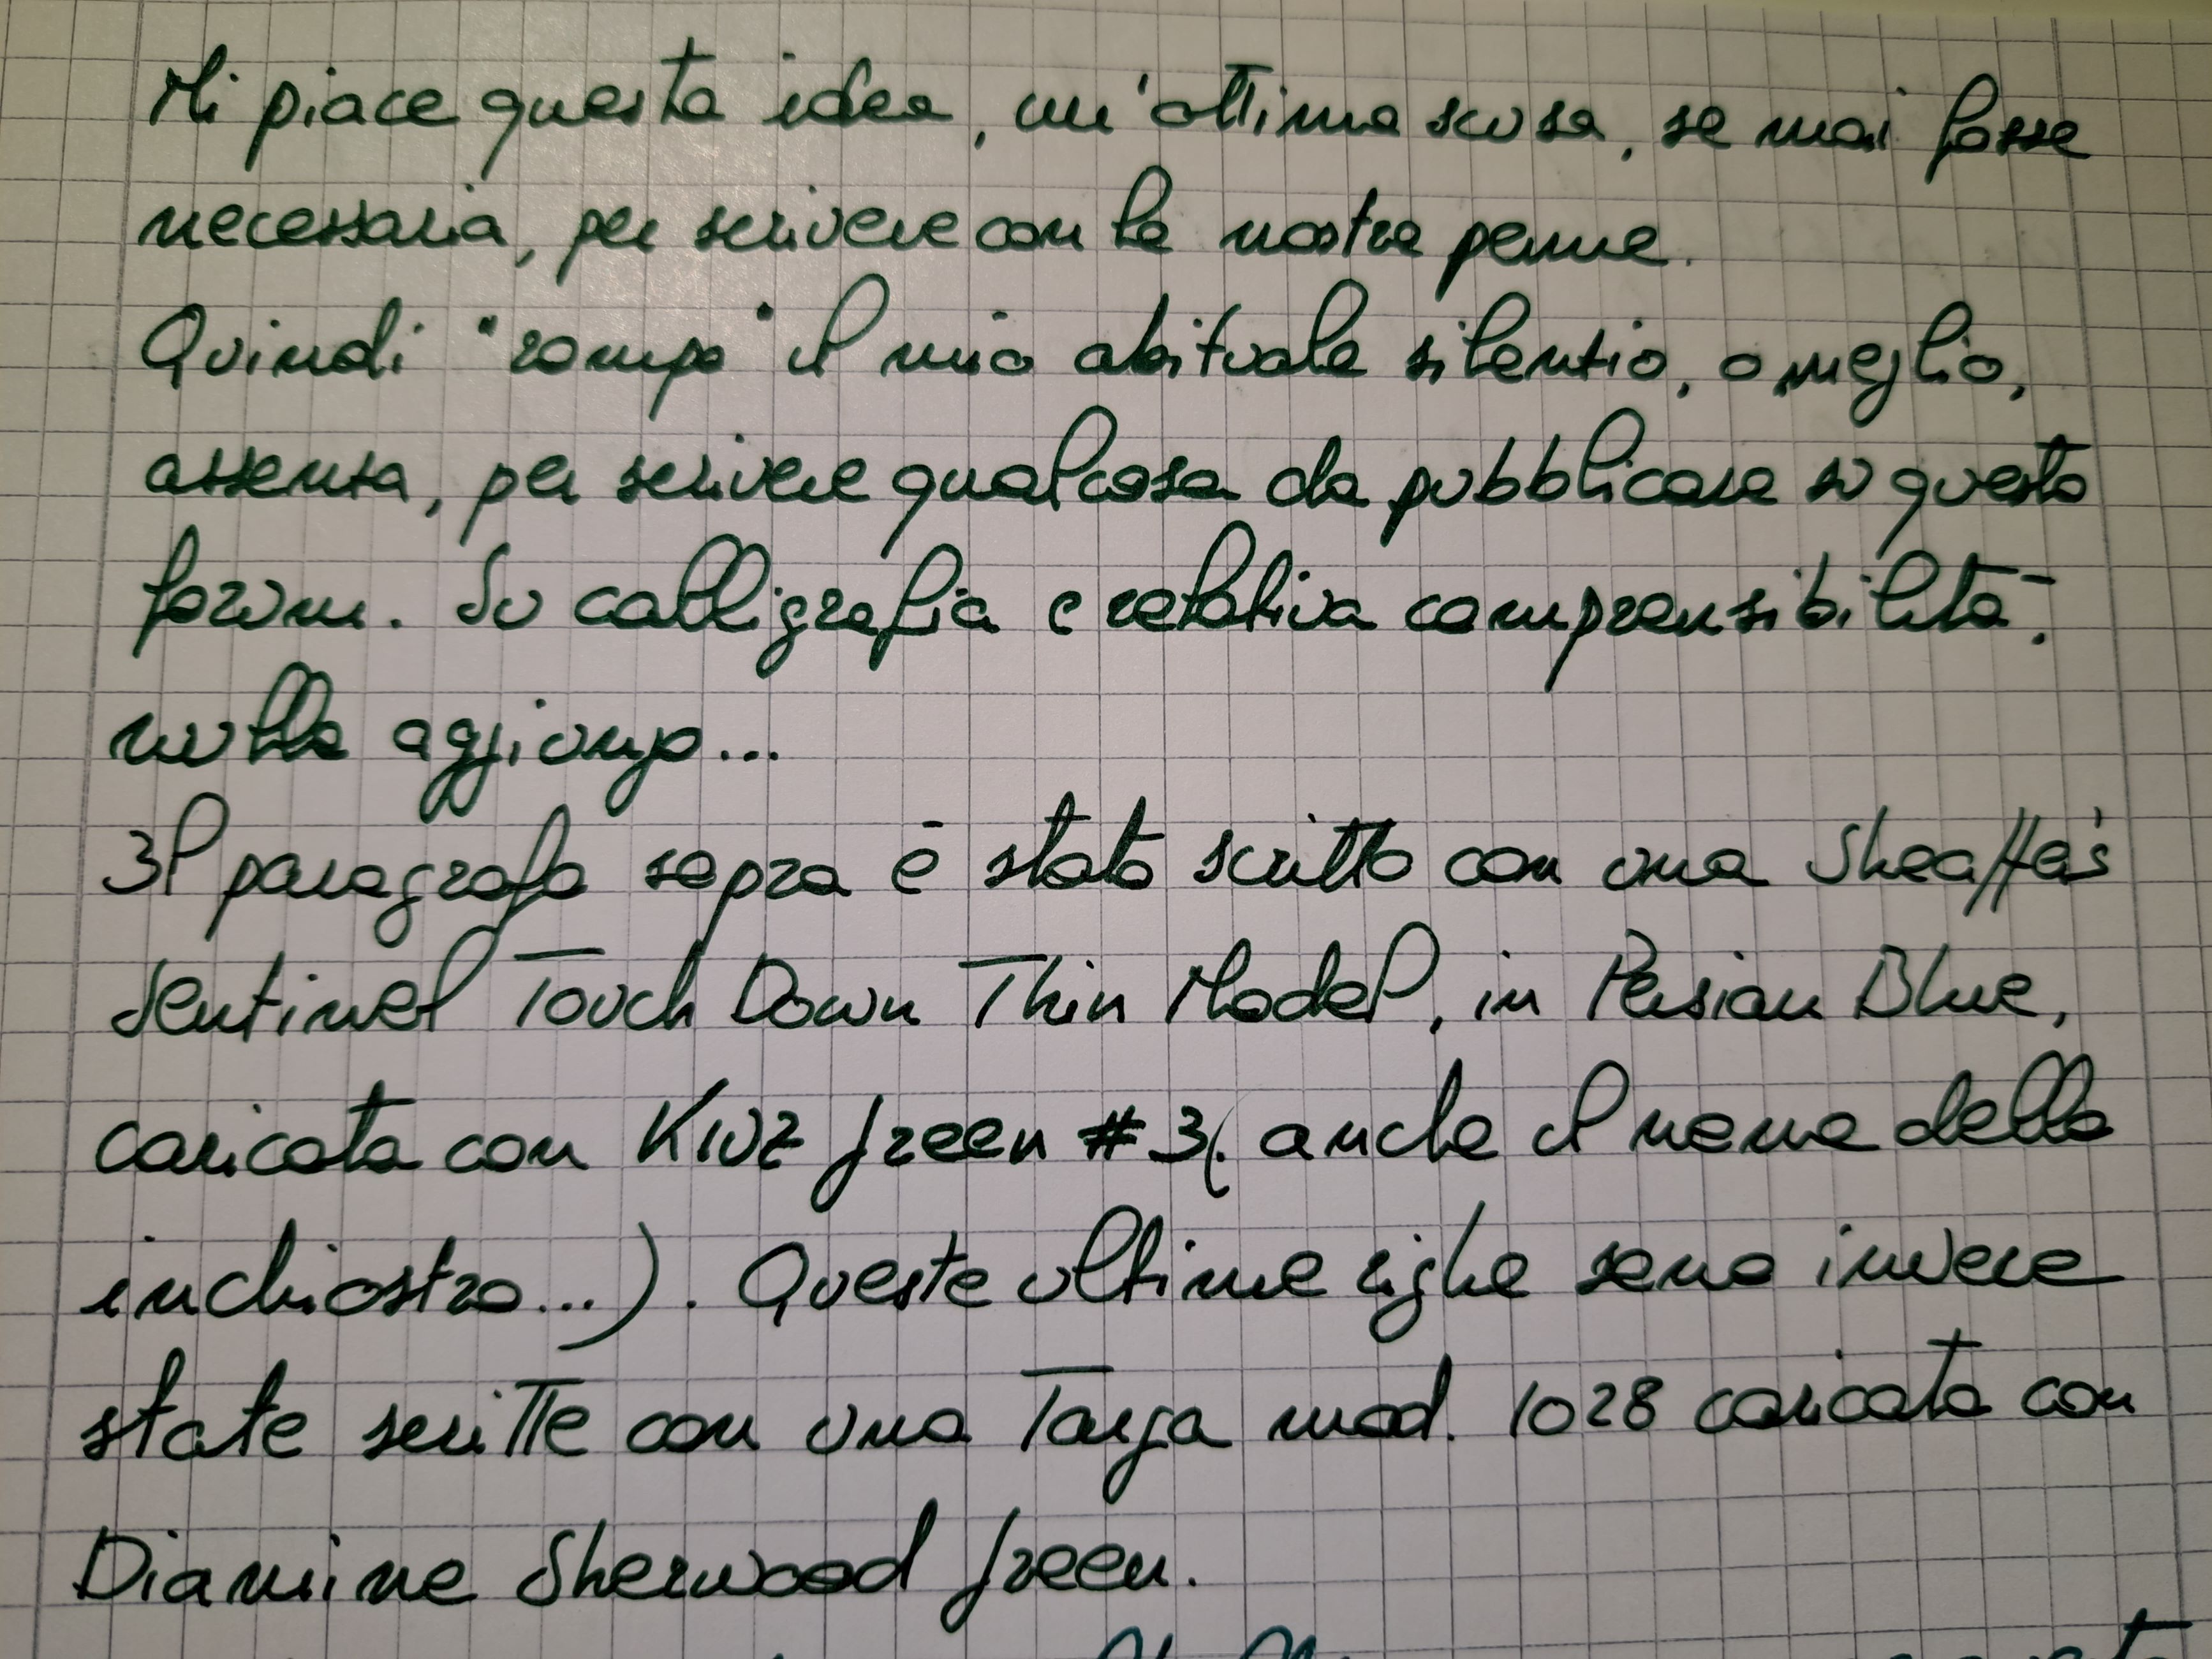 Mi piace questa idea, un'ottima scusa, se mai fosse
necessaria, per scrivere con le nostre penne.
Quindi "rompo" il mio abituale silenzio, o meglio,
assenza, per scrivere qualcosa da pubblicare su questo
forum. Su calligrafia e relativa comprensibilità,
nulla aggiungo...
Il paragrafo sopra è stato scritto con una Sheaffer's
Sentinel Touch Down Thin Model, in Persian Blue,
caricata con KWZ Green #3 (anche il nome dello
inchiostro...). Queste ultime righe sono invece
state scritte con una Targa mod. 1028 caricata con
Diamine Sherwood Green.